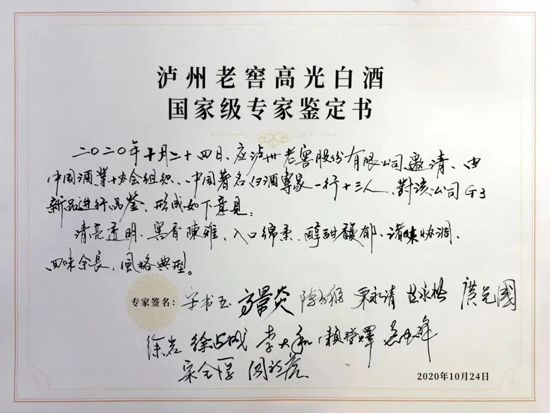 泸州老窖高光白酒
国家级专家鉴定书
二〇二〇年十月二十四日、应泸州老窖股份有限公司邀请、由
中国酒业协会组织、中国著名白酒专家一行十三人、对该公司G3
新品进行品鉴、形成如下意见:
清亮透明、窖香陳雅、入口绵柔、醇甜馥郁、諸味协调、
回味余長、風格典型。
专家签名: 宋书玉 高景炎 栗永清 赵永福 廣克國
徐岩 徐占成 李大和
2020年10月24日